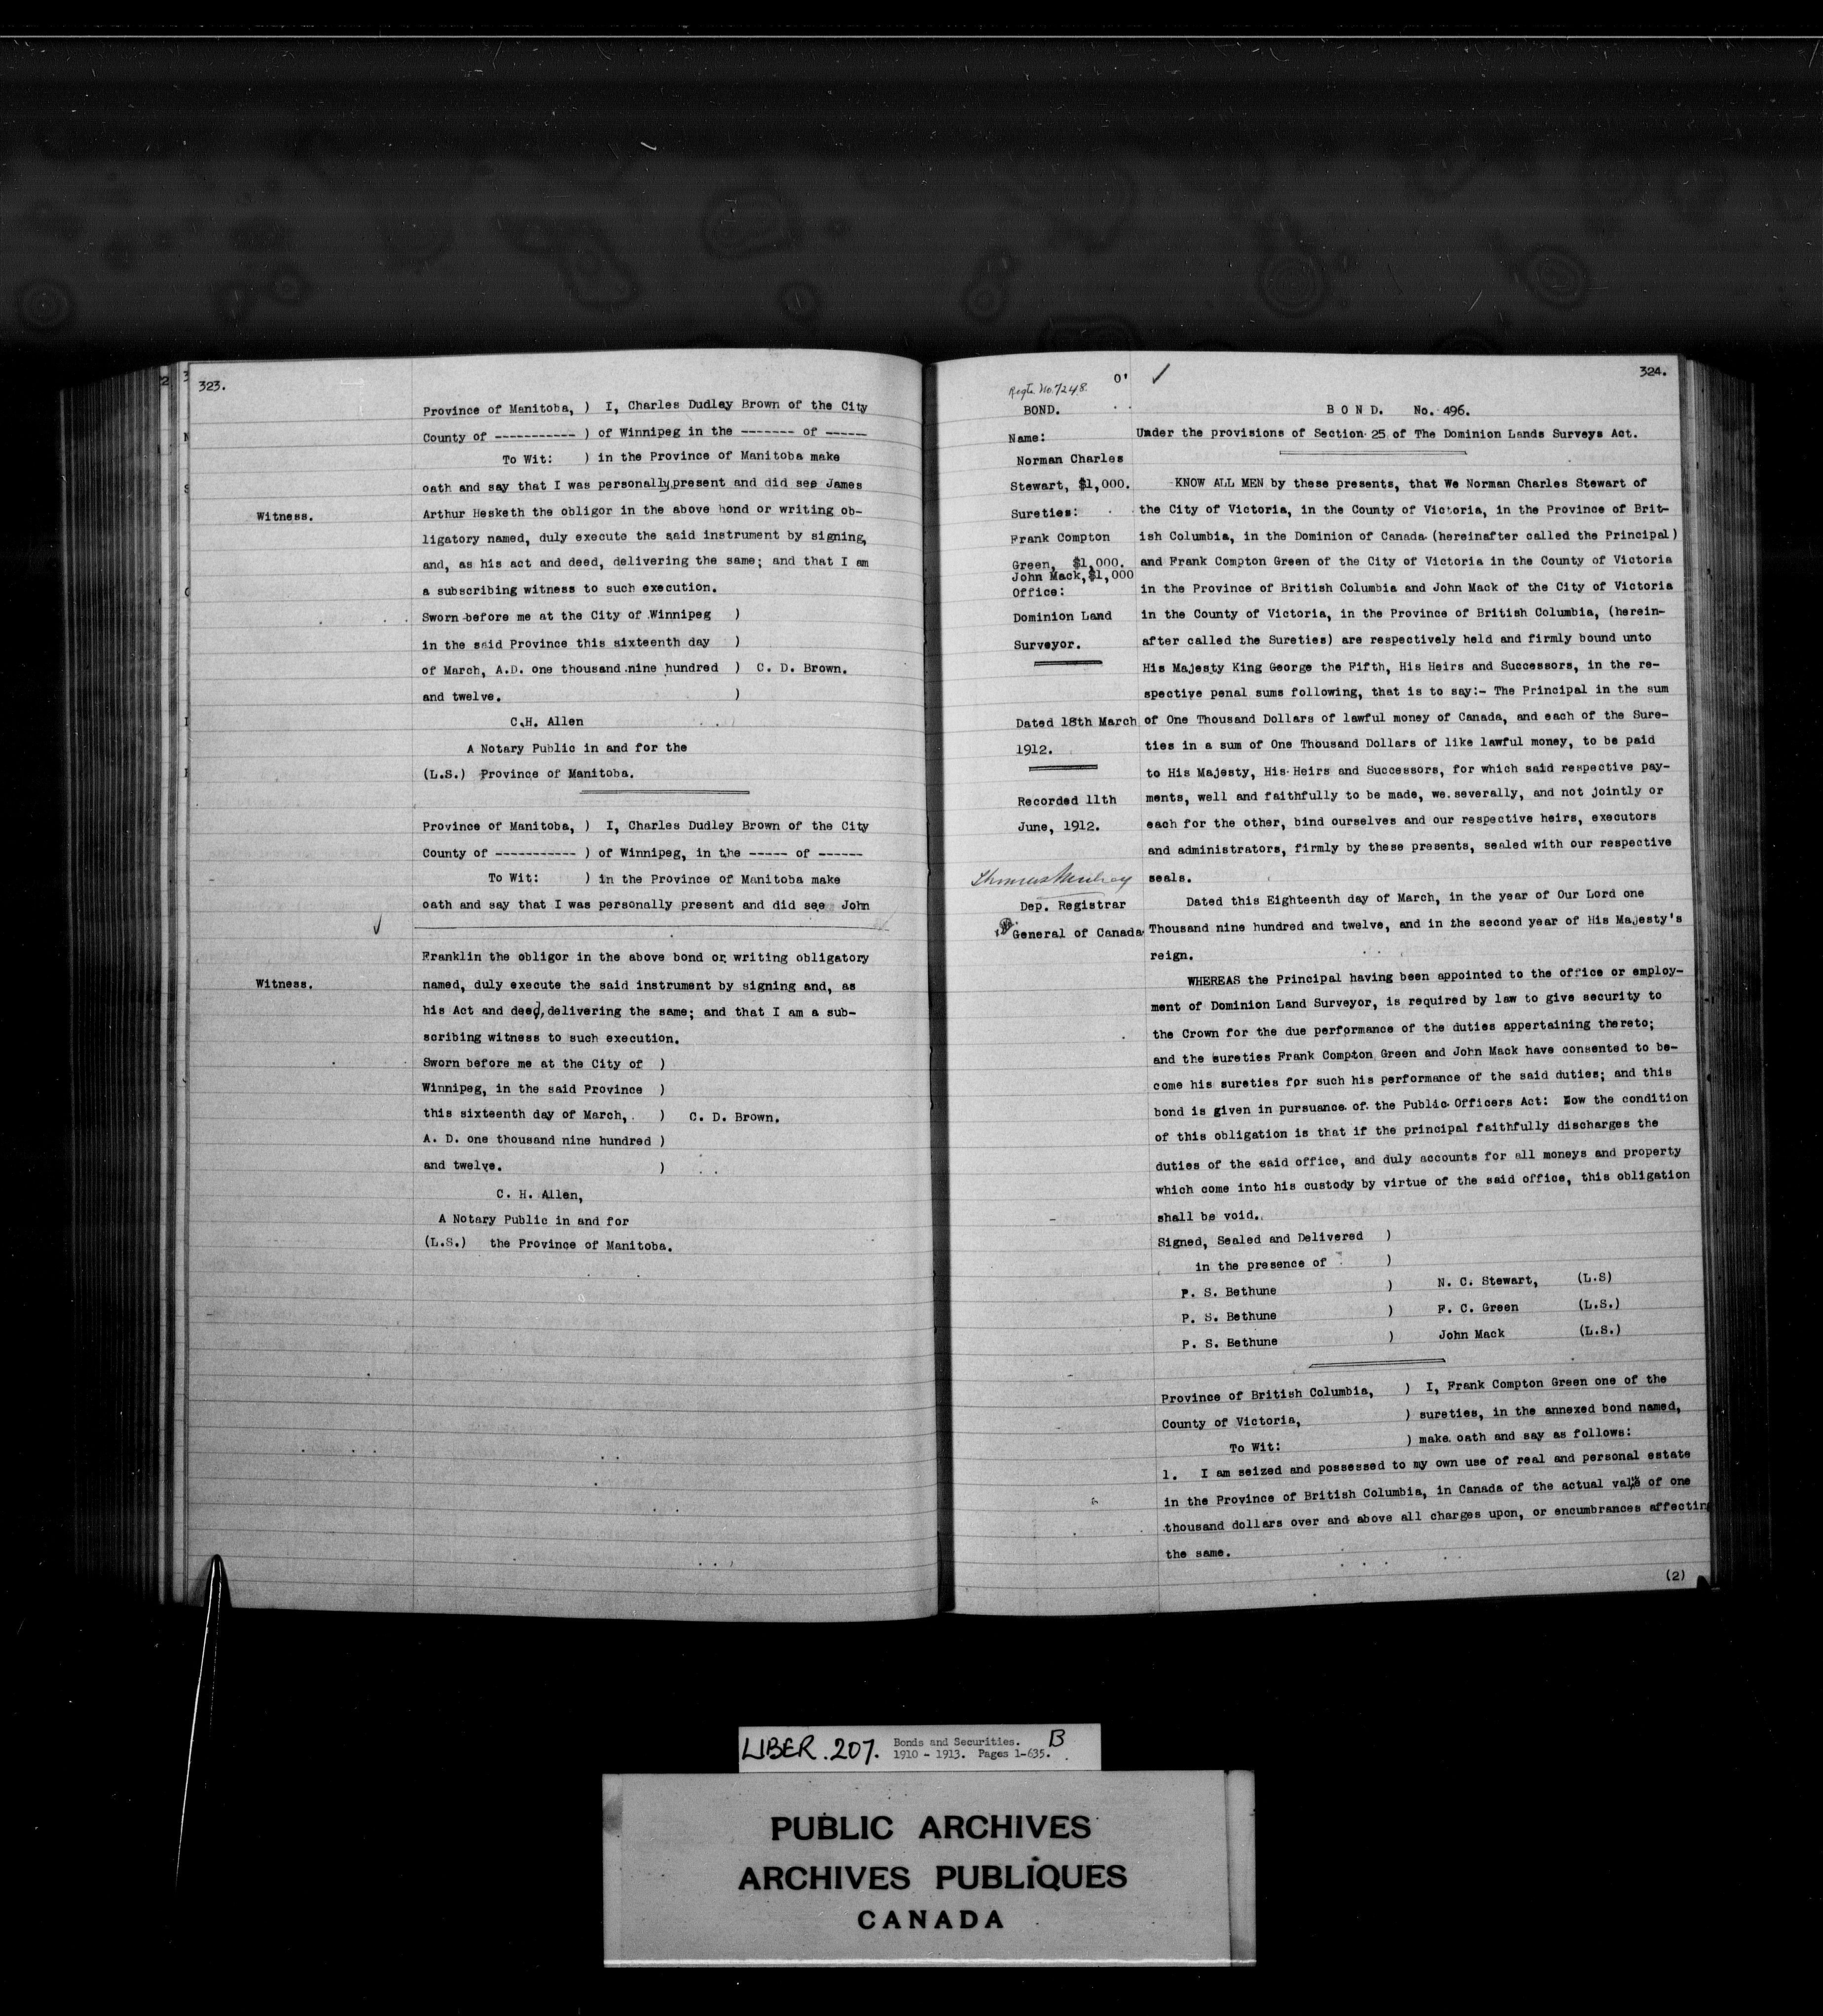 323.
Province of Manitoba, ) I, Charles Dudley Brown of the City
County of ----------- ) of Winnipeg in the ------- of -----
To Wit: ) in the Province of Manitoba make
oath and say that I was personally present and did see James
Witness.
Arthur Hesketh the obligor in the above bond or writing ob-
ligatory named, duly execute the said instrument by signing,
and, as his act and deed, delivering the same; and that I am
a subscribing witness to such execution.
Sworn before me at the City of Winnipeg )
in the said Province this sixteenth day )
of March, A.D. one thousand nine hundred ) C. D. Brown.
and twelve. )
C.H. Allen
A Notary Public in and for the
(L.S.) Province of Manitoba.
Province of Manitoba, ) I, Charles Dudley Brown of the City
County of ----------- ) of Winnipeg, in the ----- of ------
To Wit: ) in the Province of Manitoba make
oath and say that I was personally present and did see John
Franklin the obligor in the above bond or writing obligatory
Witness.
named, duly execute the said instrument by signing and, as
his Act and deed, delivering the same; and that I am a sub-
scribing witness to such execution.
Sworn before me at the City of )
Winnipeg, in the said Province )
this sixteenth day of March, ) C. D. Brown.
A. D. one thousand nine hundred )
and twelve. )
C. H. Allen,
A Notary Public in and for
(L.S.) the Province of Manitoba.
324.
Regtr. No. 7248.
BOND.
Name:
Norman Charles
Stewart, $1,000.
Sureties:
Frank Compton
Green, $1,000.
John Mack,$1,000
Office:
Dominion Land
Surveyor.
Dated 18th March
1912.
Recorded 11th
June, 1912.
Dep. Registrar
General of Canada
B O N D. No. 496.
Under the provisions of Section 25 of The Dominion Lands Surveys Act.
KNOW ALL MEN by these presents, that We Norman Charles Stewart of
the City of Victoria, in the County of Victoria, in the Province of Brit-
ish Columbia, in the Dominion of Canada (hereinafter called the Principal)
and Frank Compton Green of the City of Victoria in the County of Victoria
in the Province of British Columbia and John Mack of the City of Victoria
in the County of Victoria, in the Province of British Columbia, (herein-
after called the Sureties) are respectively held and firmly bound unto
His Majesty King George the Fifth, His Heirs and Successors, in the re-
spective penal sums following, that is to say:- The Principal in the sum
of One Thousand Dollars of lawful money of Canada, and each of the Sure-
ties in a sum of One Thousand Dollars of like lawful money, to be paid
to His Majesty, His Heirs and Successors, for which said respective pay-
ments, well and faithfully to be made, we severally, and not jointly or
each for the other, bind ourselves and our respective heirs, executors
and administrators, firmly by these presents, sealed with our respective
seals.
Dated this Eighteenth day of March, in the year of Our Lord one
Thousand nine hundred and twelve, and in the second year of His Majesty's
reign.
WHEREAS the Principal having been appointed to the office or employ-
ment of Dominion Land Surveyor, is required by law to give security to
the Crown for the due performance of the duties appertaining thereto;
and the sureties Frank Compton Green and John Mack have consented to be-
come his sureties for such his performance of the said duties; and this
bond is given in pursuance of the Public Officers Act: Now the condition
of this obligation is that if the principal faithfully discharges the
duties of the said office, and duly accounts for all moneys and property
which come into his custody by virtue of the said office, this obligation
shall be void.
Signed, Sealed and Delivered )
in the presence of )
P. S. Bethune ) N. C. Stewart, (L.S)
P. S. Bethune ) F. C. Green (L.S.)
P. S. Bethune ) John Mack (L.S.)
Province of British Columbia, ) I, Frank Compton Green one of the
County of Victoria, ) sureties, in the annexed bond named,
To Wit: ) make oath and say as follows:
1. I am seized and possessed to my own use of real and personal estate
in the Province of British Columbia, in Canada of the actual value of one
thousand dollars over and above all charges upon, or encumbrances affecting
the same.
(2)
LIBER . 207. Bonds and Securities. B
1910 - 1913. Pages 1-635.
PUBLIC ARCHIVES
ARCHIVES PUBLIQUES
CANADA